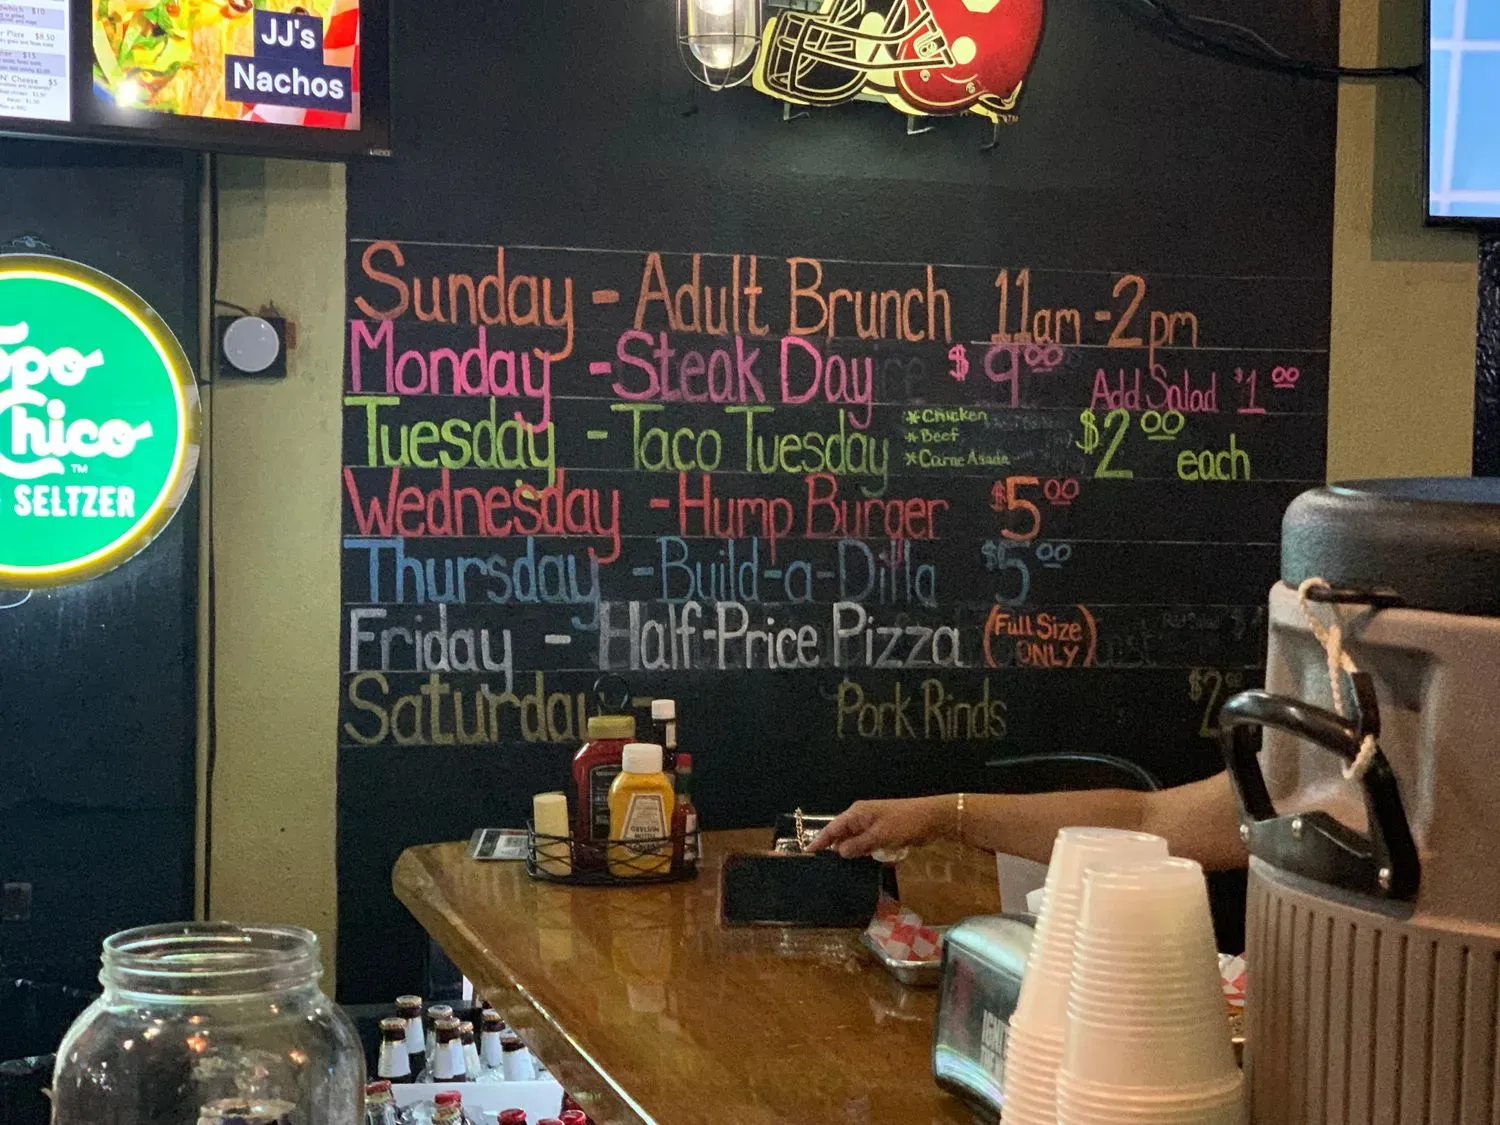 $10
Plate $8.50
$15
N' Cheese $5
JJ's
Nachos
Topo
Chico
™
SELTZER
Sunday - Adult Brunch 11am - 2pm
Monday - Steak Day $9.00 Add Salad $1.00
Tuesday - Taco Tuesday *Chicken *Beef *Carne Asada $2.00 each
Wednesday - Hump Burger $5.00
Thursday - Build-a-Dilla $5.00
Friday - Half-Price Pizza (Full Size ONLY)
Saturday - Pork Rinds $2